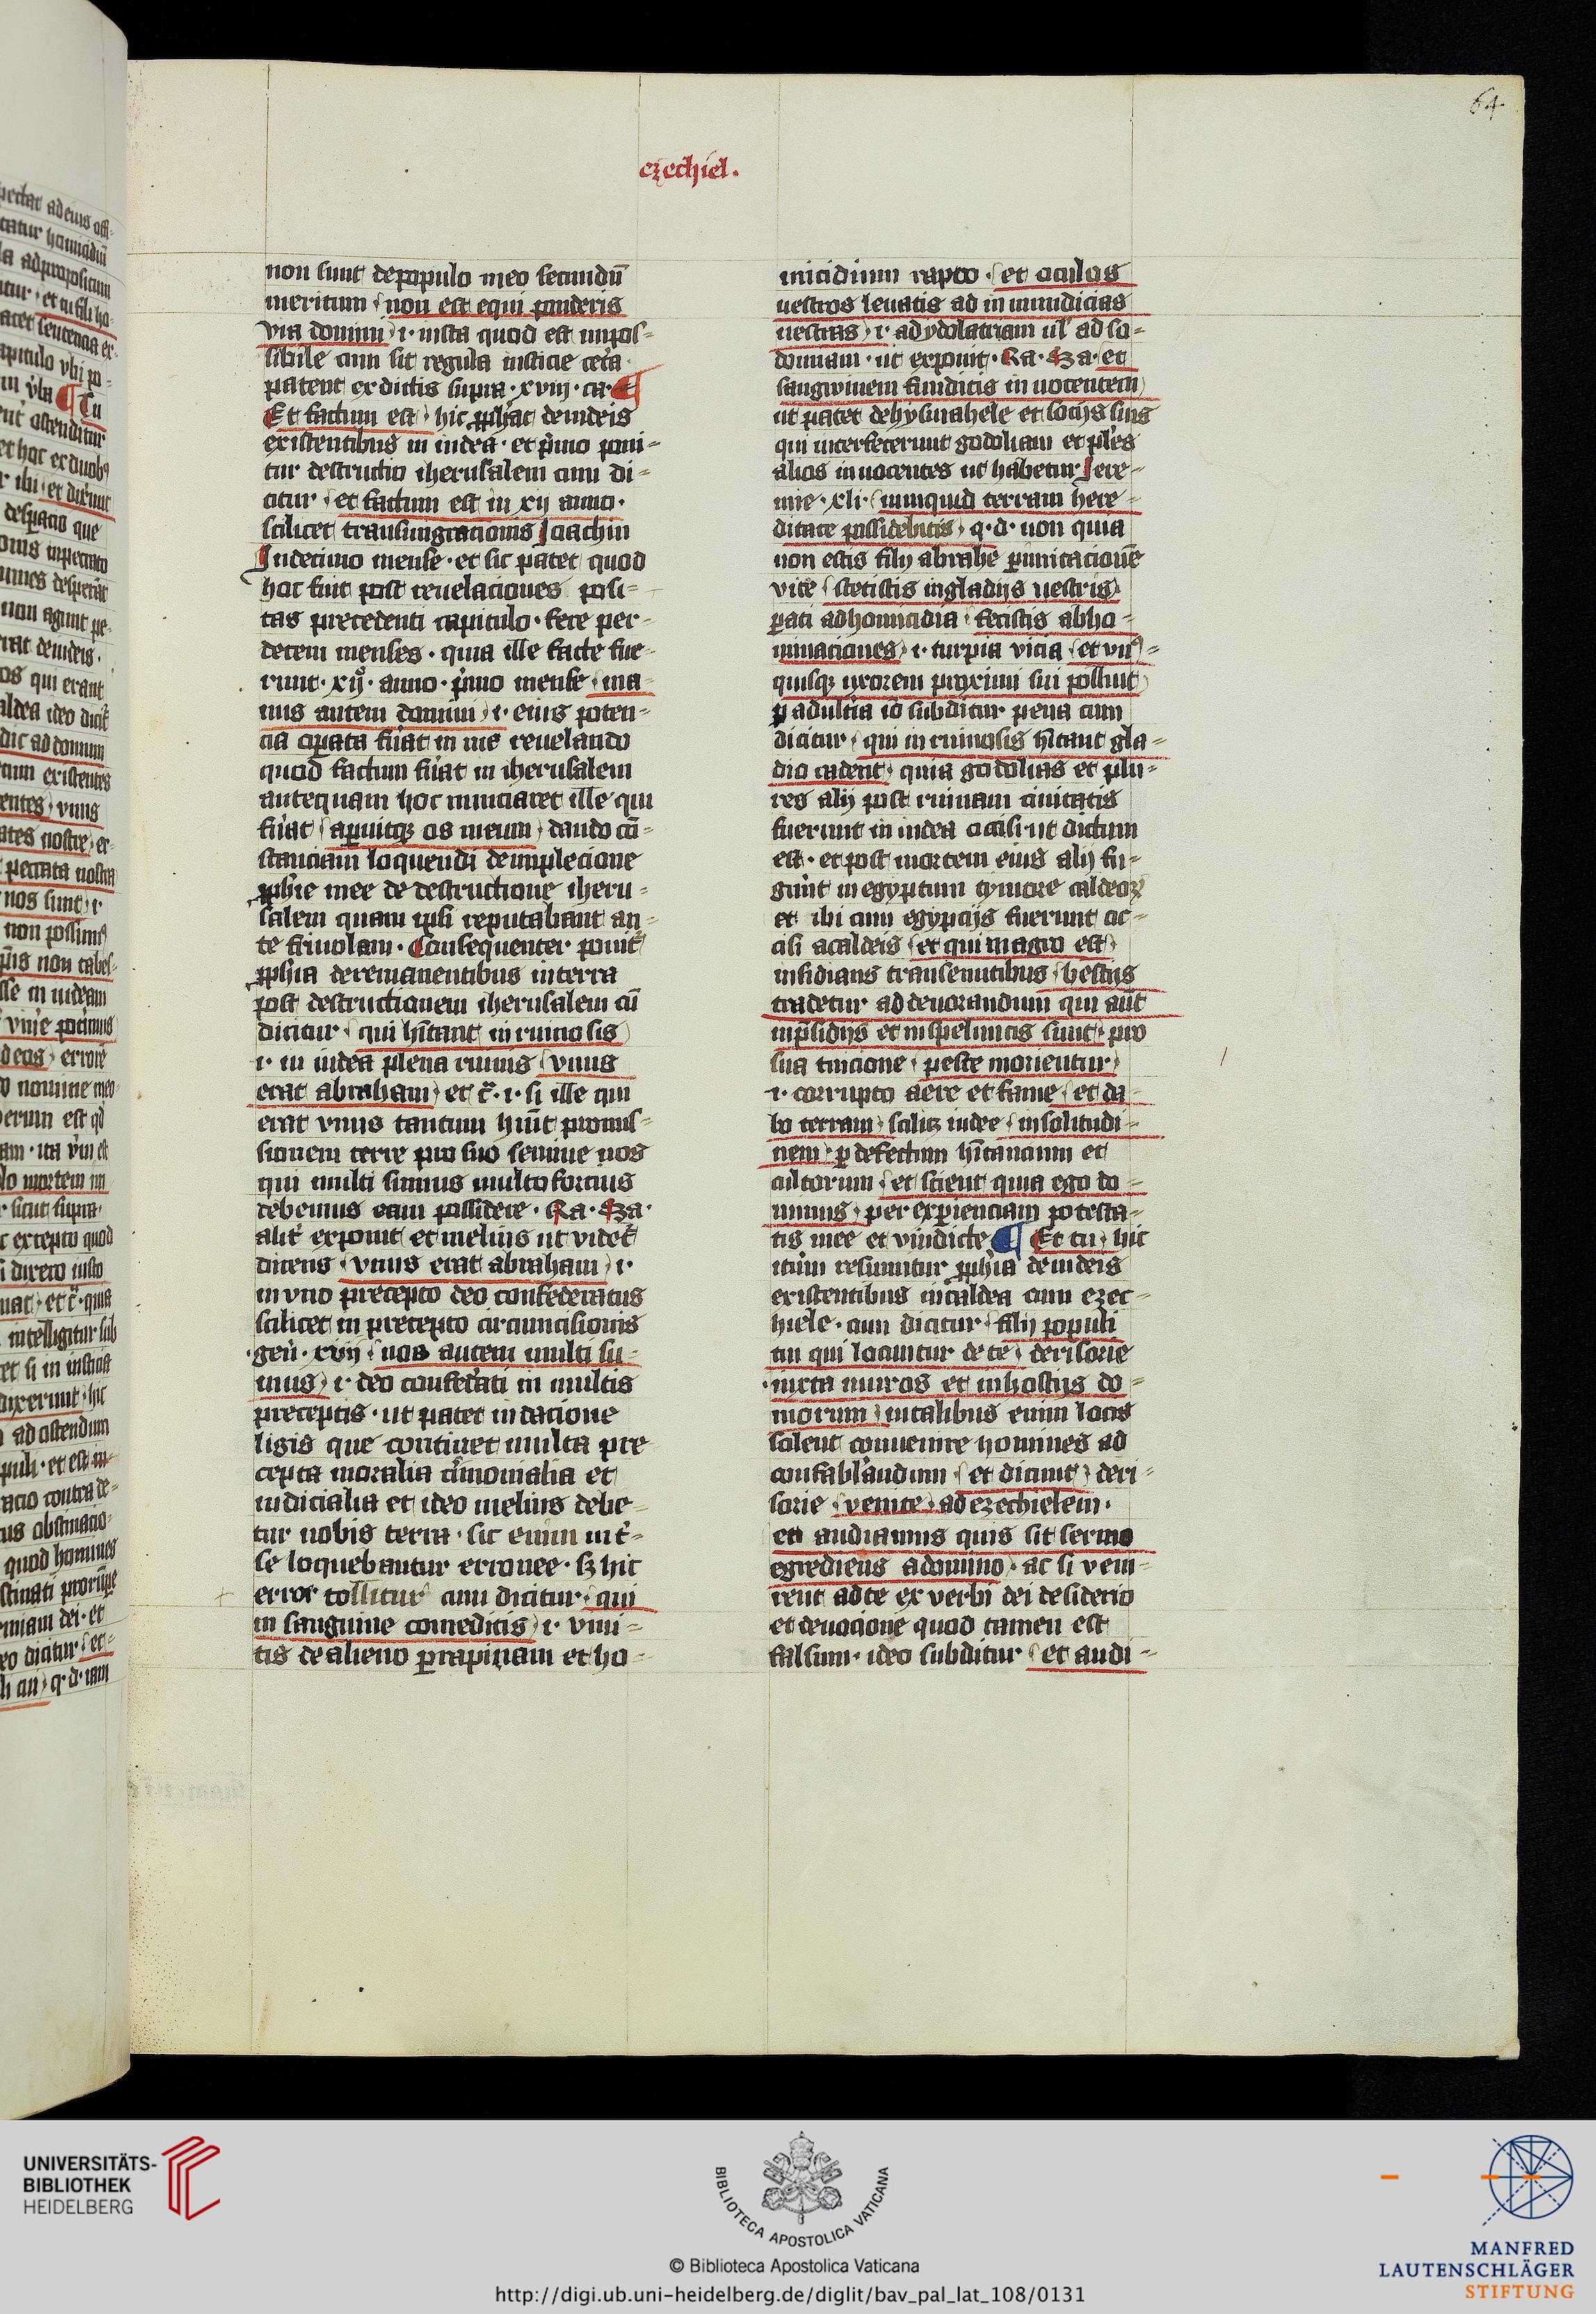 64
ezechiel.
non sunt de populo meo secundū
meritum non est equi ponderis
via domini ·i· iusta quod est impos-
sibile cum sit regula iusticie cetā
patent ex dictis supra · xviij · ca · ¶
Et factum est hic ꝓphāt de iudeis
existentibus in iudea · et pͥmo poni-
tur destructio iherusalem cum di-
citur et factum est in xij anno ·
scilicet transmigracionis Joachin
In decimo mense · et sic patet quod
hoc fuit post reuelaciones posi-
tas precedenti capitulo · fere per
decem menses · quia ille facte fue-
runt · xijͦ · anno · pͥmo mense ma-
nus autem domini ·i· eius poten-
cia opata fuāt in me reuelando
quod factum fuāt in iherusalem
antequam hoc nunciaret ille qui
fuāt aꝑuitqꝫ os meum dando cō-
stanciam loquendi de implecione
ꝓphīe mee de destructione iheru-
salem quam ipsi reputabant an-
te friuolam · Consequenter ponit᷑
ꝓphīa de remanentibus in terra
post destructionem iherusalem cū
dicitur qui hītant in ruinosis
·i· in iudea plena ruinis vnus
erat abraham et c̄ · i · si ille qui
erat vnus tantum hūit promis-
sionem terre pro suo semine nos
qui multi sumus multo forcius
debemus eam possidere · Ra · Sa ·
alit᷑ exponit et melius ut videt᷑
dicens vnus erat abraham ·i·
in vno precepto deo confederatus
scilicet in precepto circumcisionis
geñ · xvij nos autem multi su-
mus ·i· deo confedāti in multis
preceptis · ut patet in dacione
legis que continet multa pre
cepta moralia cīmonialia et
iudicialia et ideo melius debe-
tur nobis terra · sic enim int᷑-
se loquebantur erronee · sꝫ hic
error tollitur cum dicitur qui
in sanguine comeditis ·i· viui-
tis de alieno ꝑ rapinam et ho-
micidium rapto · et oculos
uestros leuatis ad inmundicias
uestras ·i· ad ydolatriam ul ad so-
domiam · ut exponit · Ra · Sa · et
sangwinem funditis innocentem
ut patet de hysmahele et socijs suis
qui interfecerunt godoliam et plēs
alios innocentes ut habetur Jere-
mie · xli · numquid terram here-
ditate possidebitis q · d · non quia
non estis filij abrahe ꝑ imitacionē
vite stetistis in gladijs uestris
ꝑati ad homicidia fecistis abho-
minaciones ·i· turpia vicia et vn9-
quisqꝫ uxorem proximi sui polluit
ꝑ adultīa iō subditur pena cum
dicitur qui in ruinosis hītant gla-
dio cadent quia godolias et plu-
res alij post ruinam ciuitatis
fuerunt in iudea occisi · ut dictum
est · et post mortem eius alij fu-
gūnt in egyptum tymore caldeoꝝ
et ibi cum egyptijs fuerunt oc-
cisi a caldeis et qui in agro est
insidians transeuntibus bestijs
tradetur ad deuorandum qui aūt
in p̄sidijs et in speluncis sunt pro
sua tuicione peste morientur
·i· corrupto aere et fame et da-
bo terram scilicꝫ iudee in solitudi-
nem ꝑ defectum hītancium et
cultorum et scient quia ego do-
minus per experienciam potesta-
tis mee et vindicte ¶ Et tu hic
itūm resumitur ꝓphīa de iudeis
existentibus in caldea cum ezec-
hiele · cum dicitur filij populi
tui qui locuntur de te derisorie
iuxta muros et in hostijs do-
morum in talibus enim locis
solent conuenire homines ad
confablāndum et dicunt deri-
sorie venite ad ezechielem ·
et audiamus quis sit sermo
egrediens a domino ac si veni-
rent ad te ex verbi dei desiderio
et deuocione quod tamen est
falsum · ideo subditur et audi-
UNIVERSITÄTS-
BIBLIOTHEK
HEIDELBERG
BIBLIOTECA APOSTOLICA VATICANA
© Biblioteca Apostolica Vaticana
http://digi.ub.uni-heidelberg.de/diglit/bav_pal_lat_108/0131
MANFRED
LAUTENSCHLÄGER
STIFTUNG